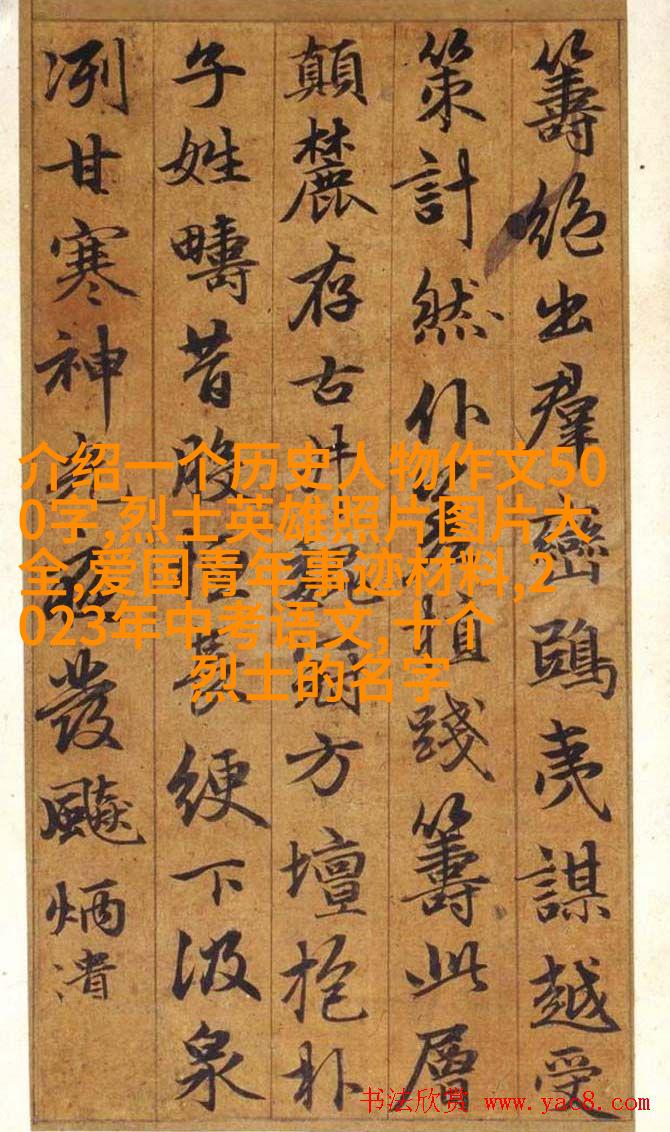 籌絕出群巒鴟夷謀越受
策計然仆植踐籌此層
顛麓存古井方壇抱朴
子姓疇昔長綆下汲泉
冽甘寒神發飈炳潰
介绍一个历史人物作文50
0字,烈士英雄照片图片大
全,爱国青年事迹材料,2
023年中考语文,十个
烈士的名字
书法欣赏 www.yac8.com